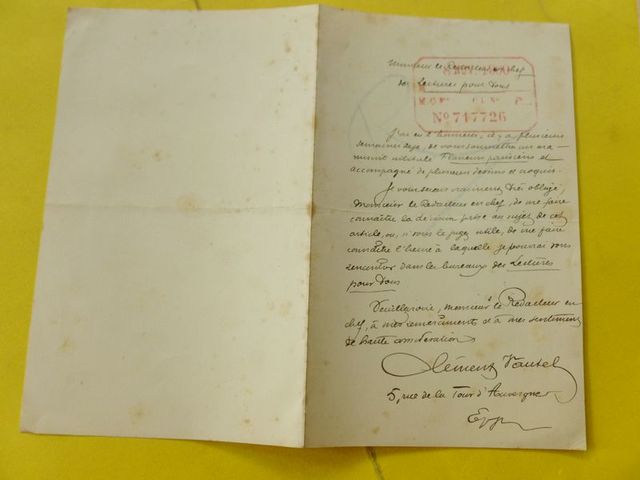 Monsieur le Rédacteur en chef
des Lectures pour Tous
No 717726
J'ai eu l'honneur, il y a plusieurs
semaines déjà, de vous soumettre un ma-
nuscrit intitulé Flaneurs parisiens et
accompagné de plusieurs dessins et croquis.
Je vous serais vraiment très obligé,
Monsieur le Rédacteur en chef, de me faire
connaître la décision prise au sujet de cet
article, ou, si vous le jugez utile, de me faire
connaître l'heure à laquelle je pourrai vous
rencontrer dans les bureaux des Lectures
pour Tous
Veuillez croire, monsieur le Rédacteur en
chef, à mes remerciements et à mes sentiments
de haute considération
Clément Vautel
5, rue de la Tour d'Auvergne